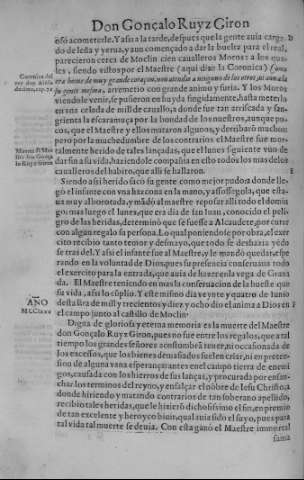 Don Gonçalo Ruyz Giron
osó acometerle. Y assi a la tarde, despues que la gente auia carga
do de leña y yerua, y aun començado a dar la buelta para el real,
parecieron cerca de Moclin cien caualleros Moros: a los qua-
les, siendo vistos por el Maestre (aqui dize la Coronica)
era home de muy grande coraçon, non atendio a ninguno de los otros, ni aun a la
su gente mesma, arremetio con grande animo y furia. Y los Moros
viendole venir, se pusieron en huyda fingidamente, hasta meterla
en vna celada de mill caualleros, donde fue tan arriscada y san-
grienta la escaramuça por la bondad de los nuestros, aunque po-
cos, que el Maestre y ellos mataron algunos, y derribaron muchos:
pero por la muchedumbre de los contrarios el Maestre fue mor-
talmente herido de tales lançadas, que el lunes siguiente vuo de
dar fin a su vida, haziendole compañia en esto todos los mas de los
caualleros del habito, que alli se hallaron.
Coronica del
rey don Alfonso
decimo, cap. 72
Siendo assi herido sacó su gente como mejor pudo: a donde lle-
gó el infante con vna hazcona en la mano, y assossegola, que esta-
ua muy alborotada, y mādó al maestre reposar alli todo el domin
go: mas luego el lunes, que era dia de san Iuan, conocido el peli-
gro de las heridas, determinó que se fuesse a Alcaudete, por curar
con algun regalo su persona. Lo qual poniendose por obra, el exer-
cito recibio tanto temor y desmayo, que todo se deshazia yēdo
se tras del. Y assi el infante fue al Maestre, y le mandó quedar, espe
rando en la voluntad de Dios, que su presencia contentasse todo
el exercito para la entrada, que auia de hazer en la vega de Grana
da. El Maestre teniendo en mas la conseruacion de la hueste que
su vida, assi lo cumplio. Y este mismo dia veynte y quatro de Iunio
desta era de mill y trezientos y diez y ocho dio el anima a Dios en
el campo junto al castillo de Moclin.
AÑO
MCClxxx
Digna de gloriosa y eterna memoria es la muerte del Maestre
don Gonçalo Ruyz Giron, pues no fue entre los regalos, que a tal
tiempo los grandes señores acostumbrā tener, ni ocasionada de
los excessos, que los bienes demasiados suelen criar, ni en preten-
sion de alguna vana esperança: antes en el campo en tierra de enemi
gos, causada con los hierros de sus lanças, y procurada por ensan-
char los terminos del reyno, y ensalçar el nōbre de Iesu Christo, a
donde hiriendo y matando contrarios de tan soberano apellido,
recibio tales heridas, que le hizieró dichosissimo el fin, en premio
de tan excelente y heroyco biuir, qual ruiz sido el suyo, pues para
tal vida tal muerte se deuia. Con esta ganó el Maestre immortal
fama